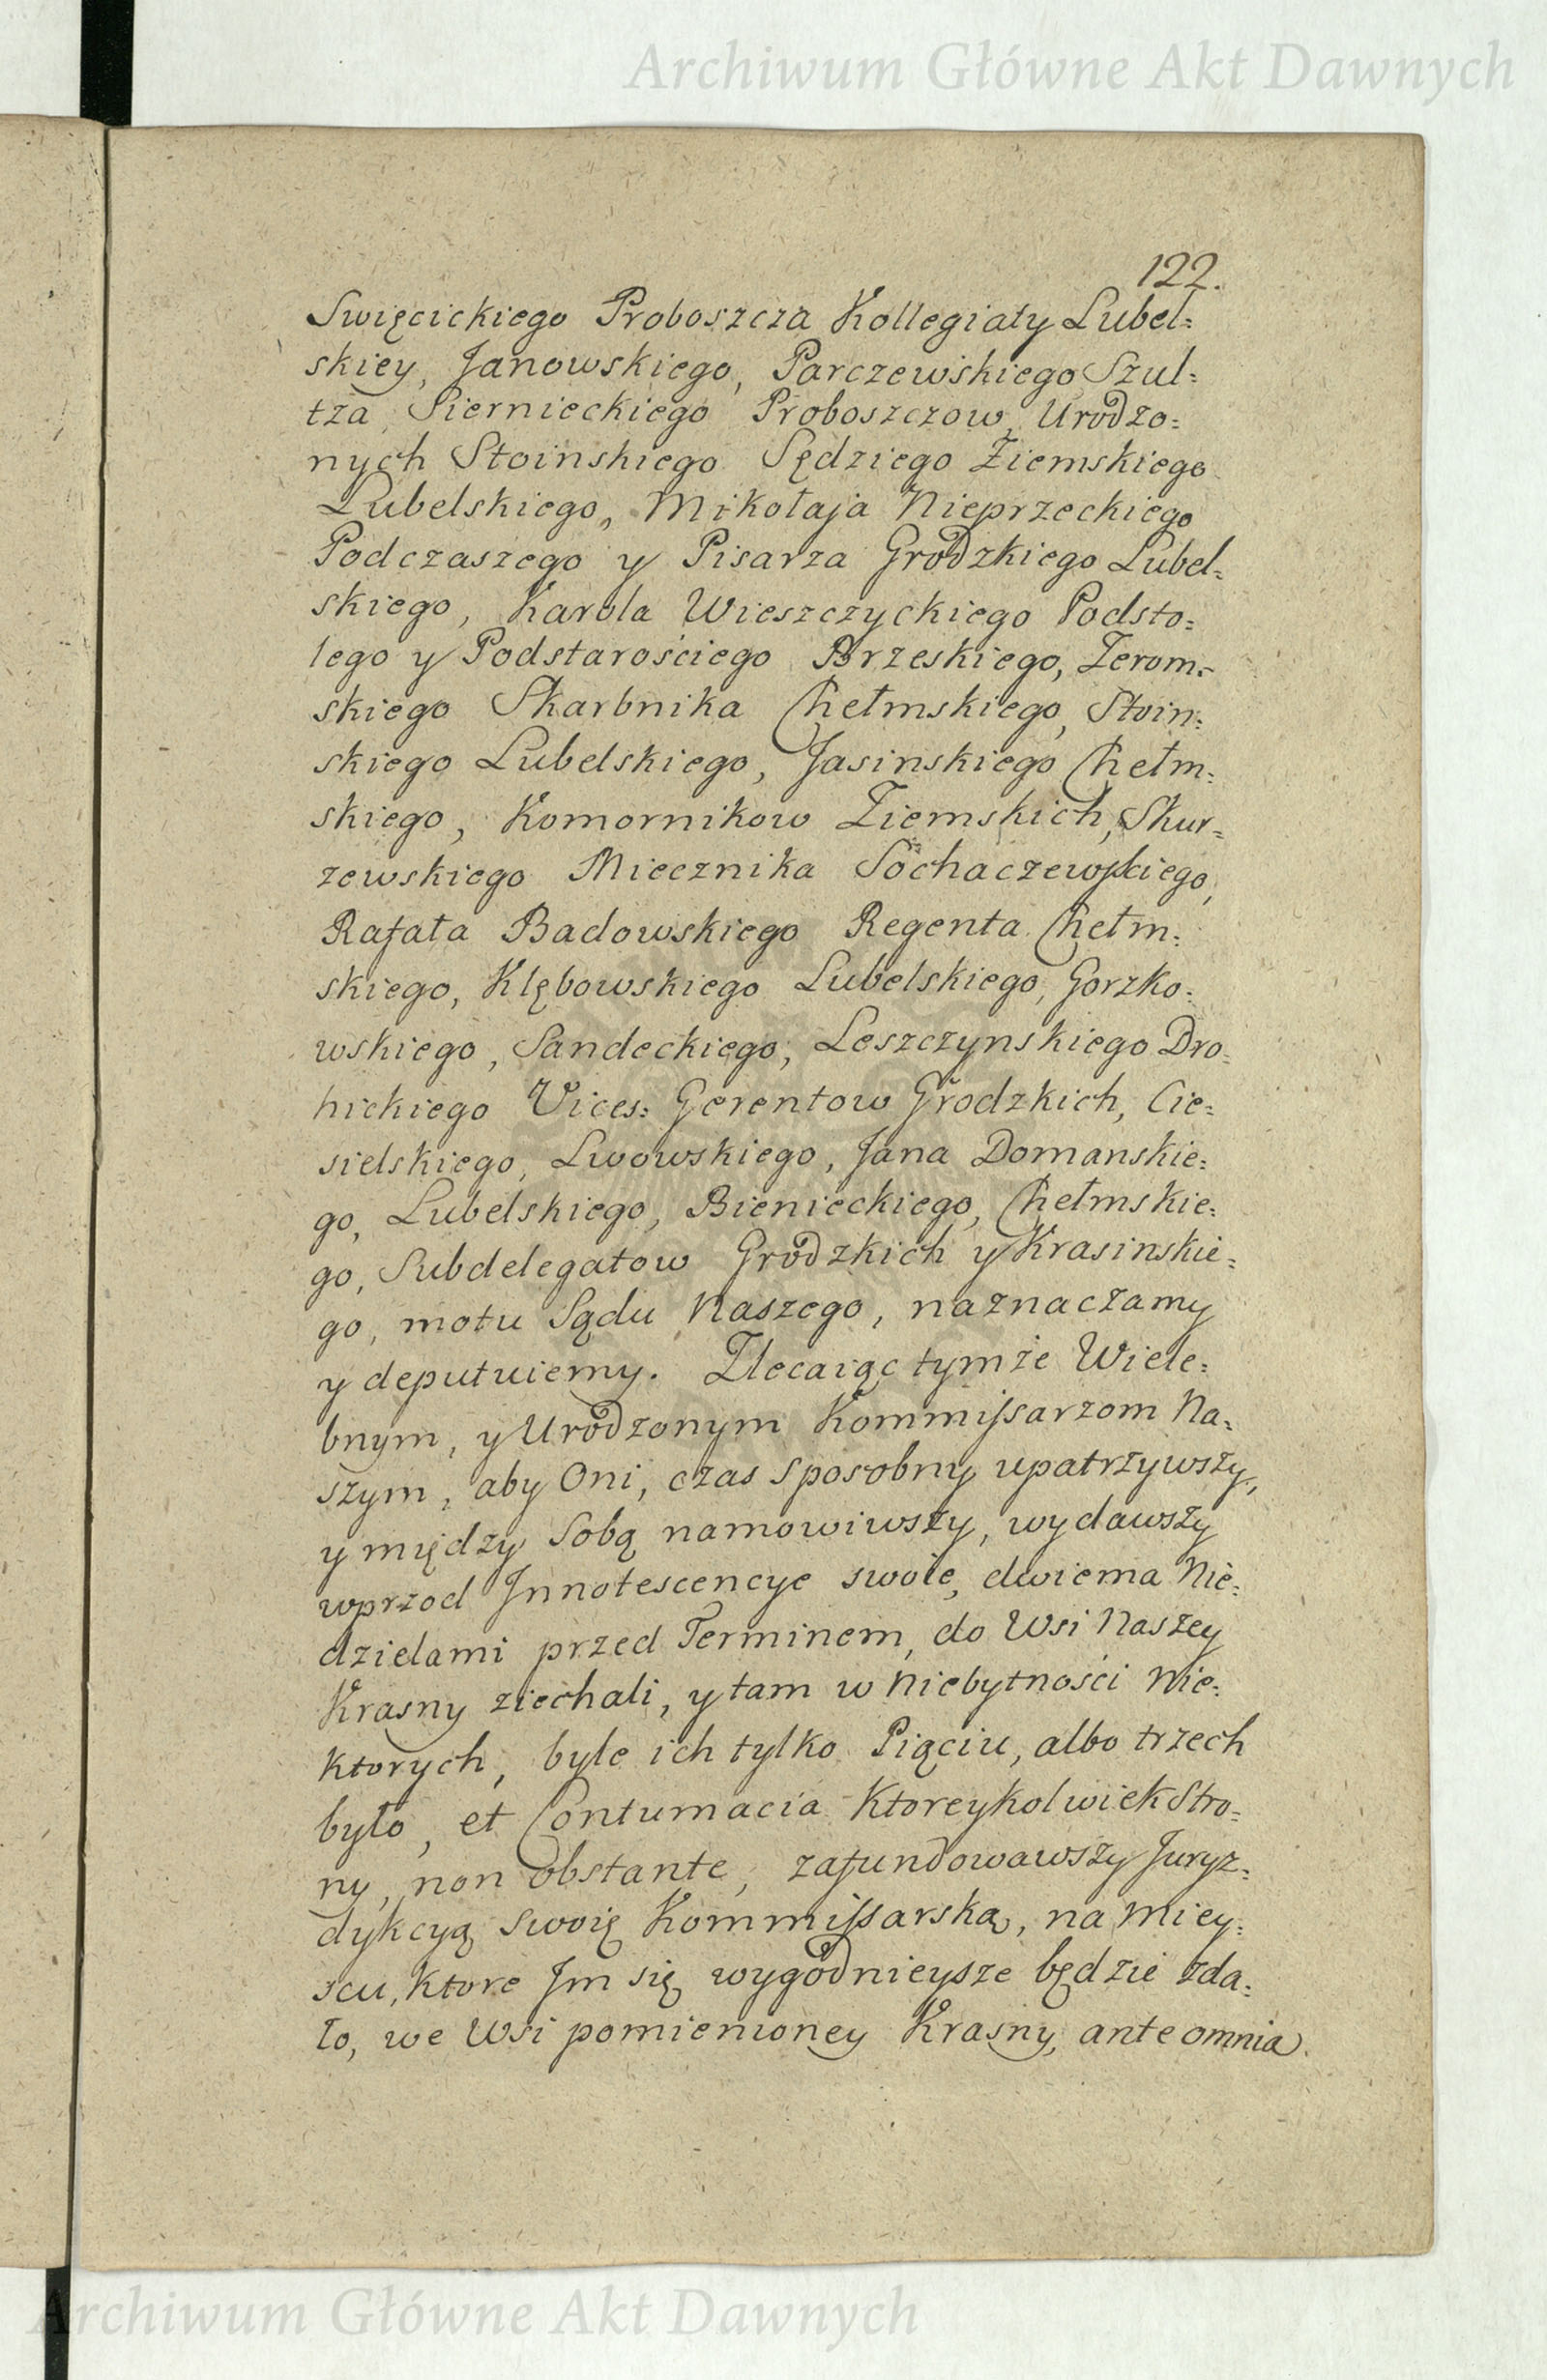 Archiwum Główne Akt Dawnych
122.
Swięcickiego Proboszcza Kollegiaty Lubel=
skiey, Janowskiego, Parczewskiego Szul=
tza, Siernieckiego Proboszczow, Urodzo=
nych Stoinskiego Sędziego Ziemskiego
Lubelskiego, Mikołaja Nieprzeckiego
Podczaszego y Pisarza Grodzkiego Lubel=
skiego, Karola Wieszczyckiego Podsto=
lego y Podstarościego Brzeskiego, Zerom=
skiego Skarbnika Chełmskiego, Stoin=
skiego Lubelskiego, Jasinskiego Chełm=
skiego, Komornikow Ziemskich, Skur=
zewskiego Miecznika Sochaczewskiego,
Rafała Badowskiego Regenta Chełm=
skiego, Klębowskiego Lubelskiego, Gorzko=
wskiego, Sandeckiego, Leszczynskiego Dro=
hickiego Vices: Gerentow Grodzkich, Cie=
sielskiego, Lwowskiego, Jana Domanskie=
go, Lubelskiego, Bienieckiego, Chełmskie=
go, Subdelegatow Grodzkich y Krasinskie=
go, motu Sądu Naszego, naznaczamy
y deputuiemy. Zlecaiąc tymże Wiele=
bnym, y Urodzonym Kommissarzom Na=
szym, aby Oni, czas sposobny upatrzywszy,
y między Sobą namowiwszy, wydawszy
wprzod Innotescencye swoie, dwiema Nie=
dzielami przed Terminem, do Wsi Naszey
Krasny ziechali, y tam w niebytności nie=
ktorych, byle ich tylko Piąciu, albo trzech
było, et Contumacia Ktoreykolwiek Stro=
ny, non obstante, zafundowawszy Juryz=
dykcyą swoię Kommissarską, na miey=
scu, Ktore Im się wygodnieysze będzie zda=
ło, we Wsi pomienioney Krasny, ante omnia.
Archiwum Główne Akt Dawnych